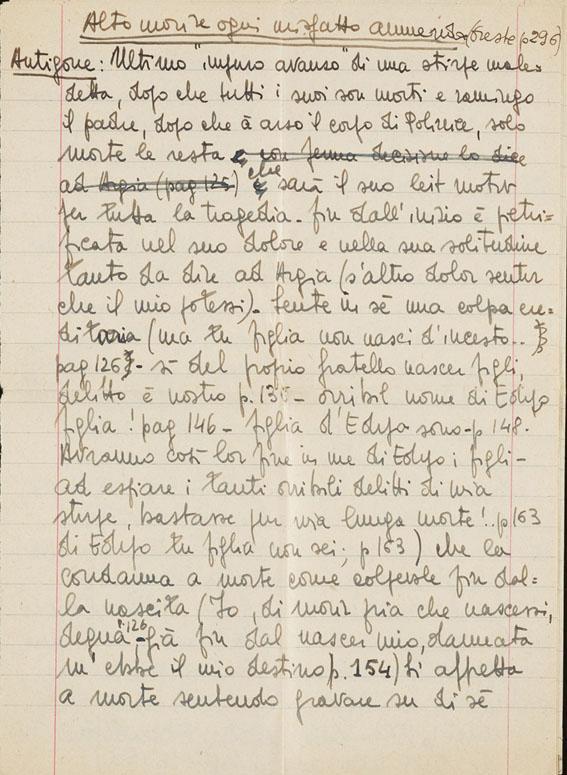 Alto morire ogni misfatto ammenda (Oreste p 296)
Antigone: Ultimo "infuro avanzo" di una stirpe male=
detta, dopo che tutti i suoi son morti e ramingo
il padre, dopo che à arso il corpo di Polinice, solo
morte le resta e con ferma decisione lo dice
ad Argia (pag 125) che e sarà il suo leit motiv
per tutta la tragedia. Fin dall'inizio è petri=
ficata nel suo dolore e nella sua solitudine
tanto da dire ad Argia (s'altro dolor sentir
che il mio potessi). Sente in sè una colpa ere=
ditaria (ma tu figlia non nasci d'incesto..
pag 126 - sì del proprio fratello nascer figli,
delitto è nostro p. 135 - orribil nome di Edipo
figlia! pag 146 - figlia d'Edipo sono - p 148.
Avranno così lor fine in me di Edipo i figli -
ad espiare i tanti orribili delitti di mia
stirpe, bastasse pur mia lunga morte!. p 163
di Edipo tu figlia non sei; p 163) che la
condanna a morte come colpevole fin dal=
la nascita (Io, di morir pria che nascessi,
degna p. 126 - già fin dal nascer mio, dannata
m'ebbe il mio destino p. 154) Si affretta
a morte sentendo gravare su di sè